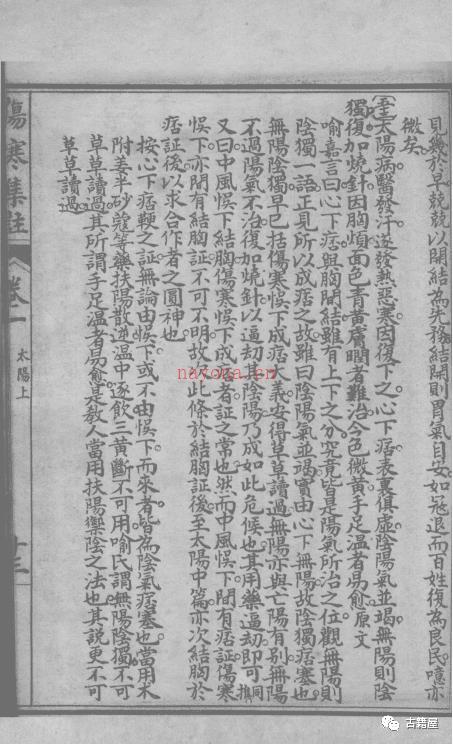 見幾於早兢兢以開結為先務結開則胃氣自安如冦退而百姓復為良民噫亦
微矣
太陽病醫發汗遂發熱惡寒因復下之心下痞表裏俱虛陰陽氣並竭無陽則陰
獨復加燒針因胸煩面色青黃膚瞤者難治今色微黃手足温者易愈原文
喻嘉言曰心下痞與胸間結雖有上下之分究竟皆是陽氣所治之位觀無陽則
陰獨一語正見所以成痞之故雖曰陰陽氣並竭實由心下無陽故陰獨痞塞也
無陽陰獨早已括傷寒悞下成痞大義安得草草讀過無陽亦與亡陽有別無陽
不過陽氣不治復加燒針以逼劫其陰陽乃成如此危候也其用藥逼劫即可類推
又曰中風悞下結胸傷寒悞下成痞者証之常也然而中風悞下間有痞証傷寒
悞下亦間有結胸証不可不明故次此條於結胸証後至太陽中篇亦次結胸於
痞証後以求合作者之圓神也
按心下痞鞕之証無論由悞下或不由悞下而來者皆為陰氣痞塞也當用朮
附姜半砂蔻等藥扶陽散逆温中逐飲三黃斷不可用喻氏謂無陽陰獨不可
草草讀過其所謂手足温者易愈是教人當用扶陽禦陰之法也其說更不可
草草讀過
傷寒集註
卷一
太陽上
十三
nayona.cn
古籍屋